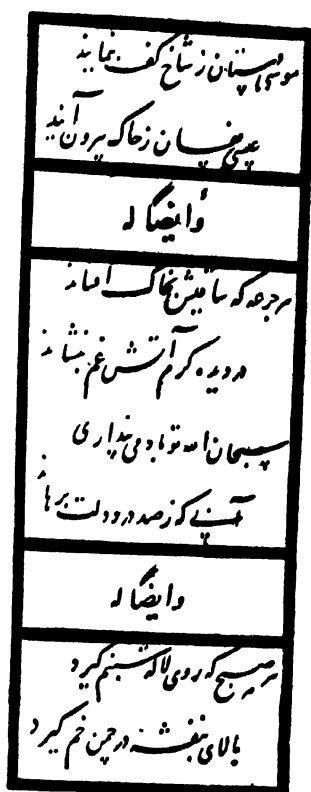 موسی دستان ز شاخ کف بنمایند
عیسی نفسان ز خاک بیرون آیند
وأیضاً له
هر جرعه که ساقیش بخاک افشاند
در دیده گرم آتش غم بنشاند
سبحان الله تو باده می پنداری
آبی که ز صد درد دلت برهاند
وایضاً له
هر صبح که روی لاله شبنم گیرد
بالای بنفشه در چمن خم گیرد